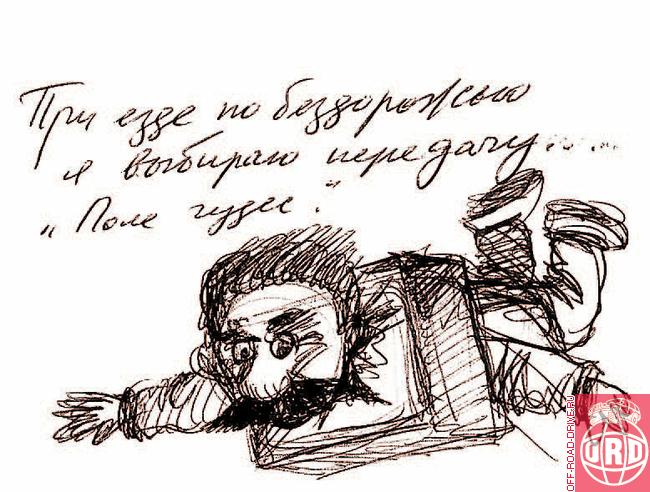 При езде по бездорожью
я выбираю передачу......
„Поле чудес."
OFF-ROAD-DRIVE.RU
ORD